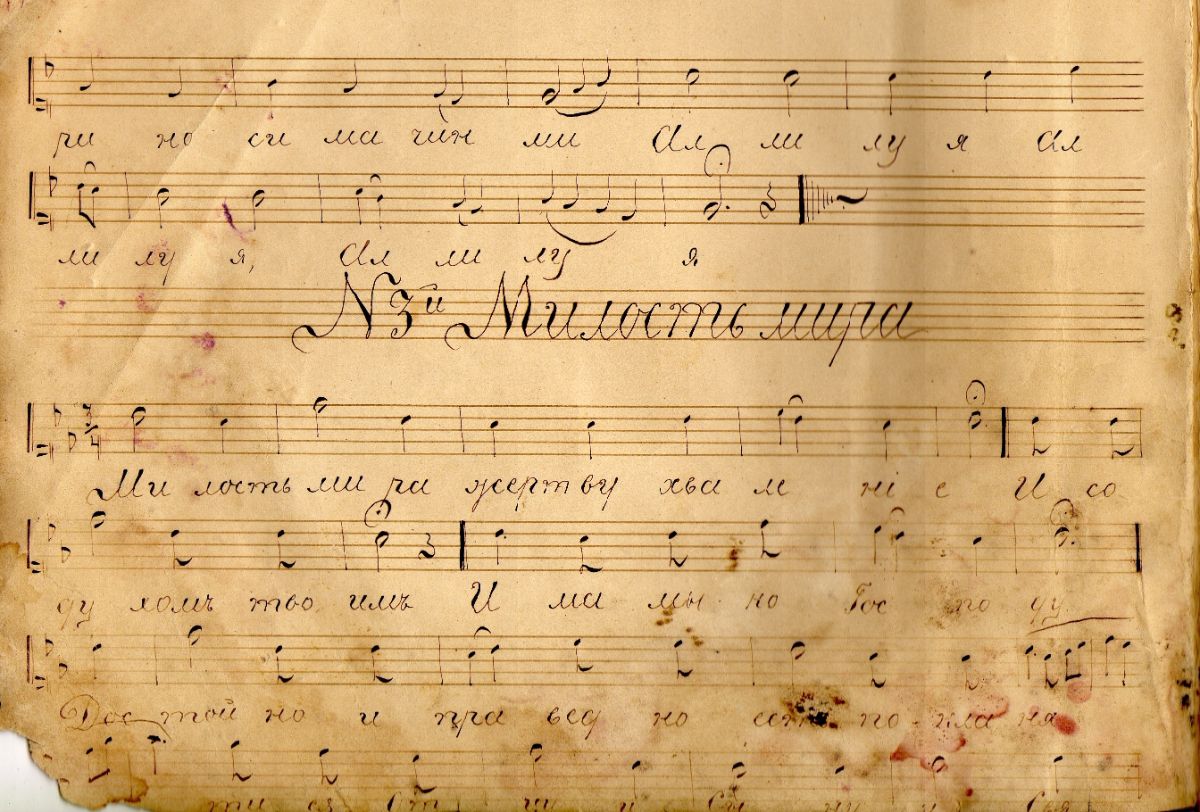 ри но си ма чин ми Ал ли лу я Ал
ли лу я, Ал ли лу я
N 3й Милость мира
Ми лость ми ра жерт ву хва ле ні е И со
ду хомъ тво имъ И ма мы ко Гос по ду
Дос той но и пра вед но есть по кла ня
ти ся От цу и Сы ну и С